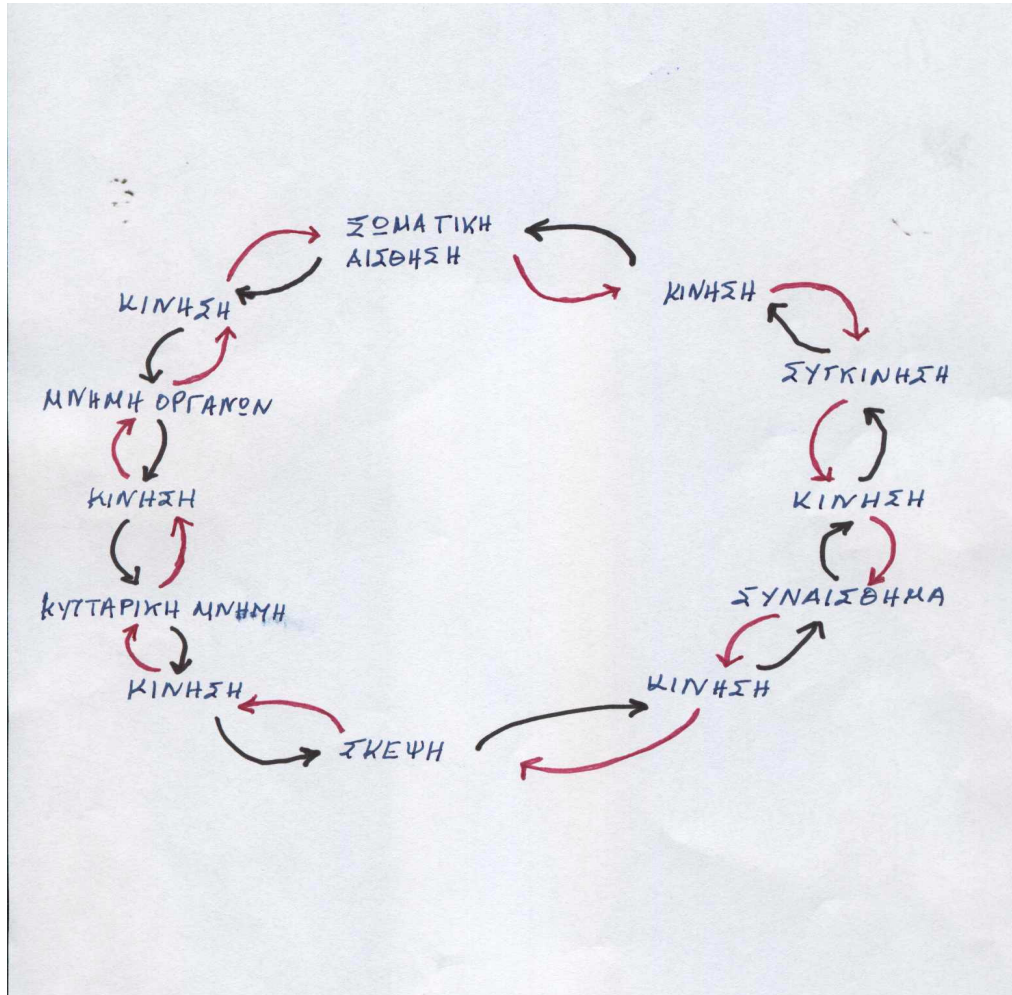 ΣΩΜΑΤΙΚΗ
ΑΙΣΘΗΣΗ
ΚΙΝΗΣΗ
ΣΥΓΚΙΝΗΣΗ
ΚΙΝΗΣΗ
ΣΥΝΑΙΣΘΗΜΑ
ΚΙΝΗΣΗ
ΣΚΕΨΗ
ΚΙΝΗΣΗ
ΚΥΤΤΑΡΙΚΗ ΜΝΗΜΗ
ΚΙΝΗΣΗ
ΜΝΗΜΗ ΟΡΓΑΝΩΝ
ΚΙΝΗΣΗ